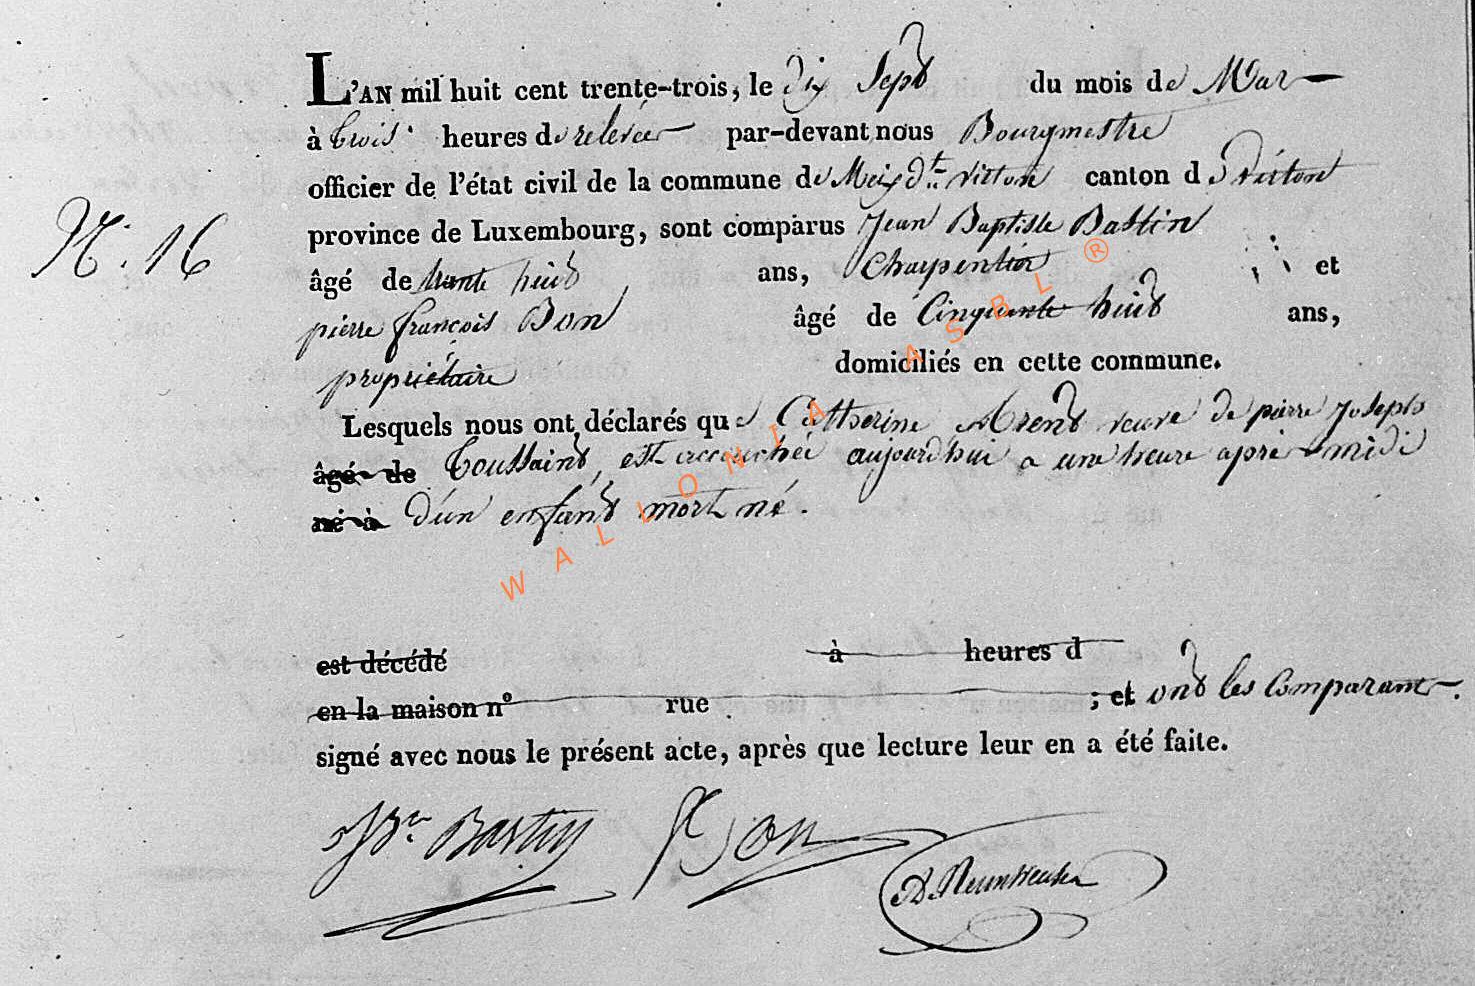 L'AN mil huit cent trente-trois, le dix Sept du mois de Mar
à trois heures de relevée par-devant nous Bourgmestre
officier de l'état civil de la commune de Meix dt virton canton d Virton
N°. 16
province de Luxembourg, sont comparus Jean Baptiste Bastin
âgé de trente huit ans, Charpentier et
pierre françois Bon âgé de Cinquante huit ans,
propriétaire domiciliés en cette commune.
Lesquels nous ont déclarés que Catherine Arent veuve de pierre Joseph
âgé de Toussaint, est accouchée aujourd'hui a une heure aprè midi
né à d'un enfant mort né.
est décédé à heures d
en la maison n° rue ; et ont les Comparant.
signé avec nous le présent acte, après que lecture leur en a été faite.
JBte Bastin Bon
WALLONIA ASBL ®